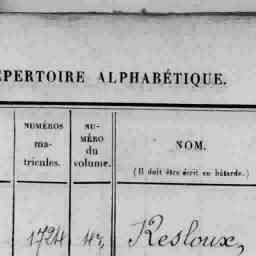 ÉPERTOIRE ALPHABÉTIQUE.
NUMÉROS
ma-
tricules.
NU-
MÉRO
du
volume.
NOM.
(Il doit être écrit en bâtarde.)
1724 Resloux,